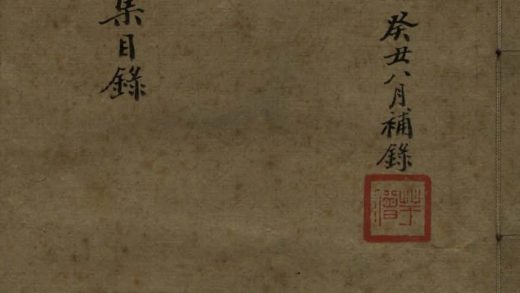 癸丑八月補錄
集目錄